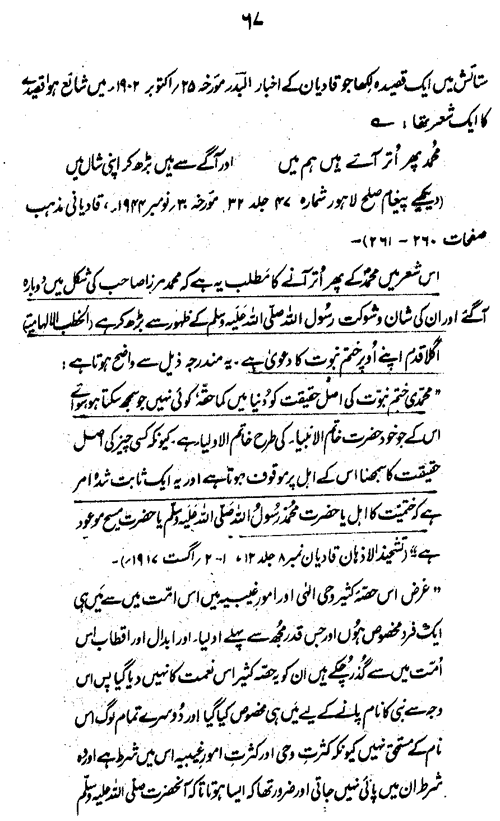 ۶۷
ستائش میں ایک قصیدہ لکھا جو قادیان کے اخبار البدر مورخہ ۲۵؍ اکتوبر ۱۹۰۲ء میں شائع ہوا قصیدے
کا ایک شعر تھا : ؎
محمدؐ پھر اُتر آئے ہیں ہم میں اور آگے سے ہیں بڑھ کر اپنی شاں میں
(دیکھیے پیغام صلح لاہور شمارہ ۴۷ جلد ۳۲ مورخہ ۳؍ نومبر ۱۹۴۴ء، قادیانی مذہب
صفحات ۲۶۰ - ۲۶۱)۔
اس شعر میں محمدؐ کے پھر اُتر آنے کا مطلب یہ ہے کہ محمد مرزا صاحب کی شکل میں دوبارہ
آگئے اور ان کی شان و شوکت رسول اللہ صلی اللہ علیہ وسلم کے ظہور سے بڑھ کر ہے (الخطب الالہامیہ)
اگلا قدم اپنے اُوپر ختم نبوت کا دعویٰ ہے۔ یہ مندرجہ ذیل سے واضح ہوتا ہے :
"محمدی ختم نبوت کی اصل حقیقت کو دُنیا میں کما حقہٗ کوئی نہیں جو سمجھ سکتا ہو سوائے
اس کے جو خود حضرت خاتم الانبیاء کی طرح خاتم الاولیاء ہے۔ کیونکہ کسی چیز کی اصل
حقیقت کا سمجھنا اس کے اہل پر موقوف ہوتا ہے اور یہ ایک ثابت شدہ امر
ہے کہ ختمیت کا اہل یا حضرت محمد رسول اللہ صلی اللہ علیہ وسلم یا حضرت مسیح موعود
ہے" (تشحیذ الاذہان قادیان نمبر ۸ جلد ۱۲، ۱-۲؍ اگست ۱۹۱۷ء)۔
"غرض اس حصۂ کثیر وحی الٰہی اور امور غیبیہ میں اس امت میں سے میں ہی
ایک فرد مخصوص ہوں اور جس قدر مجھ سے پہلے اولیاء اور ابدال اور اقطاب اس
اُمت میں سے گذر چکے ہیں ان کو یہ حصہ کثیر اس نعمت کا نہیں دیا گیا پس اس
وجہ سے نبی کا نام پانے کے لیے میں ہی مخصوص کیا گیا اور دُوسرے تمام لوگ اس
نام کے مستحق نہیں کیونکہ کثرتِ وحی اور کثرتِ امورِ غیبیہ اس میں شرط ہے اور وہ
شرط ان میں پائی نہیں جاتی اور ضرور تھا کہ ایسا ہوتا تاکہ آنحضرت صلی اللہ علیہ وسلم